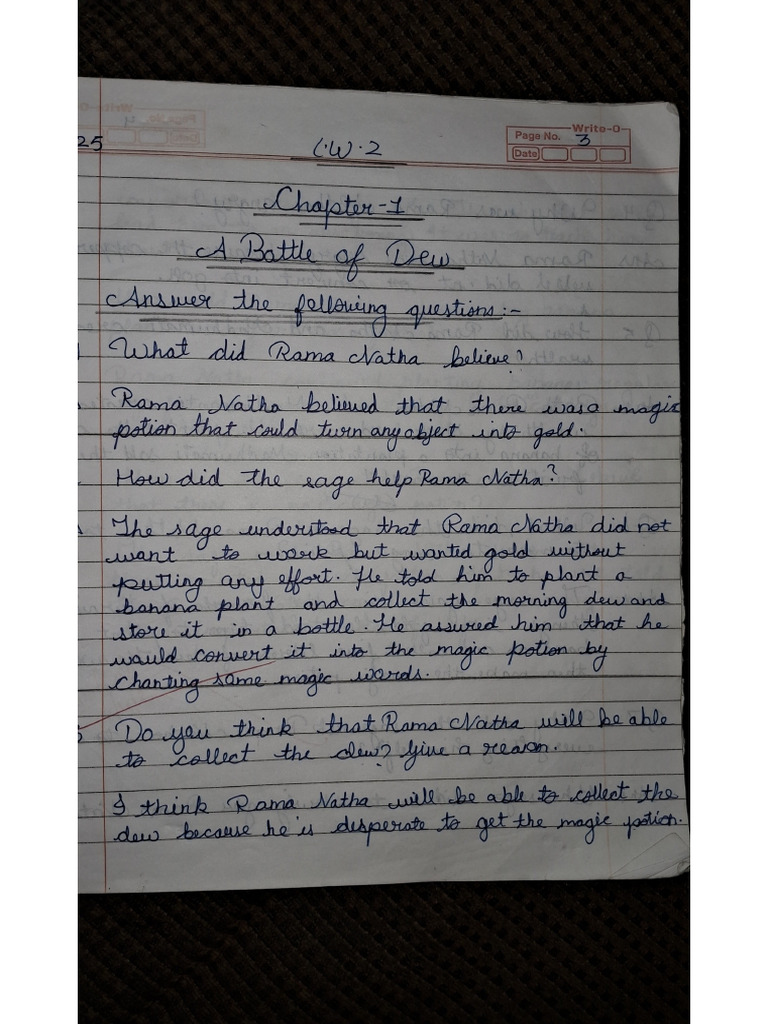 Write-O
Page No. 3
Date
25
C.W. 2
Chapter-1
A Battle of Dew
Answer the following questions:-
What did Rama Natha believe?
Rama Natha believed that there was a magic
potion that could turn any object into gold.
How did the sage help Rama Natha?
The sage understood that Rama Natha did not
want to work but wanted gold without
putting any effort. He told him to plant a
banana plant and collect the morning dew and
store it in a bottle. He assured him that he
would convert it into the magic potion by
chanting some magic words.
Do you think that Rama Natha will be able
to collect the dew? Give a reason.
I think Rama Natha will be able to collect the
dew because he is desperate to get the magic potion.